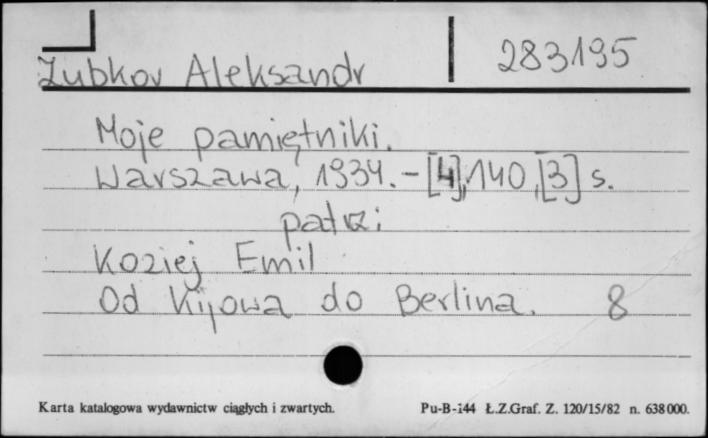 283195
Zubkov Aleksandr
Moje pamiętniki.
Warszawa, 1934. - [4], 140, [3] s.
patrz:
Koziej Emil
Od Kijowa do Berlina. 8
Karta katalogowa wydawnictw ciągłych i zwartych. Pu-B-144 Ł.Z.Graf. Z. 120/15/82 n. 638000.